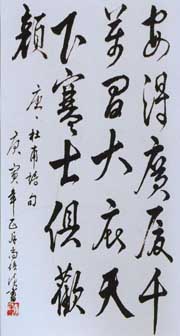 安得廣厦千
萬間大庇天
下寒士俱歡
顏
唐 杜甫詩句
庚寅年正月書